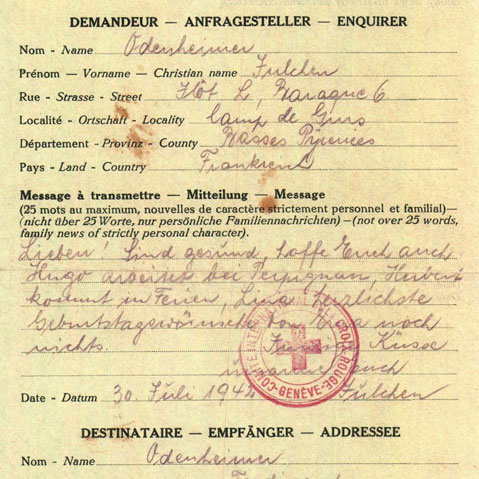 DEMANDEUR — ANFRAGESTELLER — ENQUIRER
Nom - Name Odenheimer
Prénom — Vorname — Christian name Julchen
Rue - Strasse - Street Ilôt L, Baraque 6
Localité - Ortschaft - Locality Camp de Gurs
Département - Provinz - County Basses Pyrenées
Pays - Land - Country Frankreich
Message à transmettre — Mitteilung — Message
(25 mots au maximum, nouvelles de caractère strictement personnel et familial)—
(nicht über 25 Worte, nur persönliche Familiennachrichten)—(not over 25 words,
family news of strictly personal character).
Lieben. Sind gesund, hoffe Euch auch
Hugo arbeitet bei Perpignan, Herbert
kommt in Ferien, Lina herzlichste
Geburtstagswünsche von noch
nichts. Küsse
Euch
Date - Datum 30. Juli 1942 Julchen
COMITÉ INTERNATIONAL DE LA CROIX-ROUGE GENÈVE
DESTINATAIRE — EMPFÄNGER — ADDRESSEE
Nom - Name Odenheimer